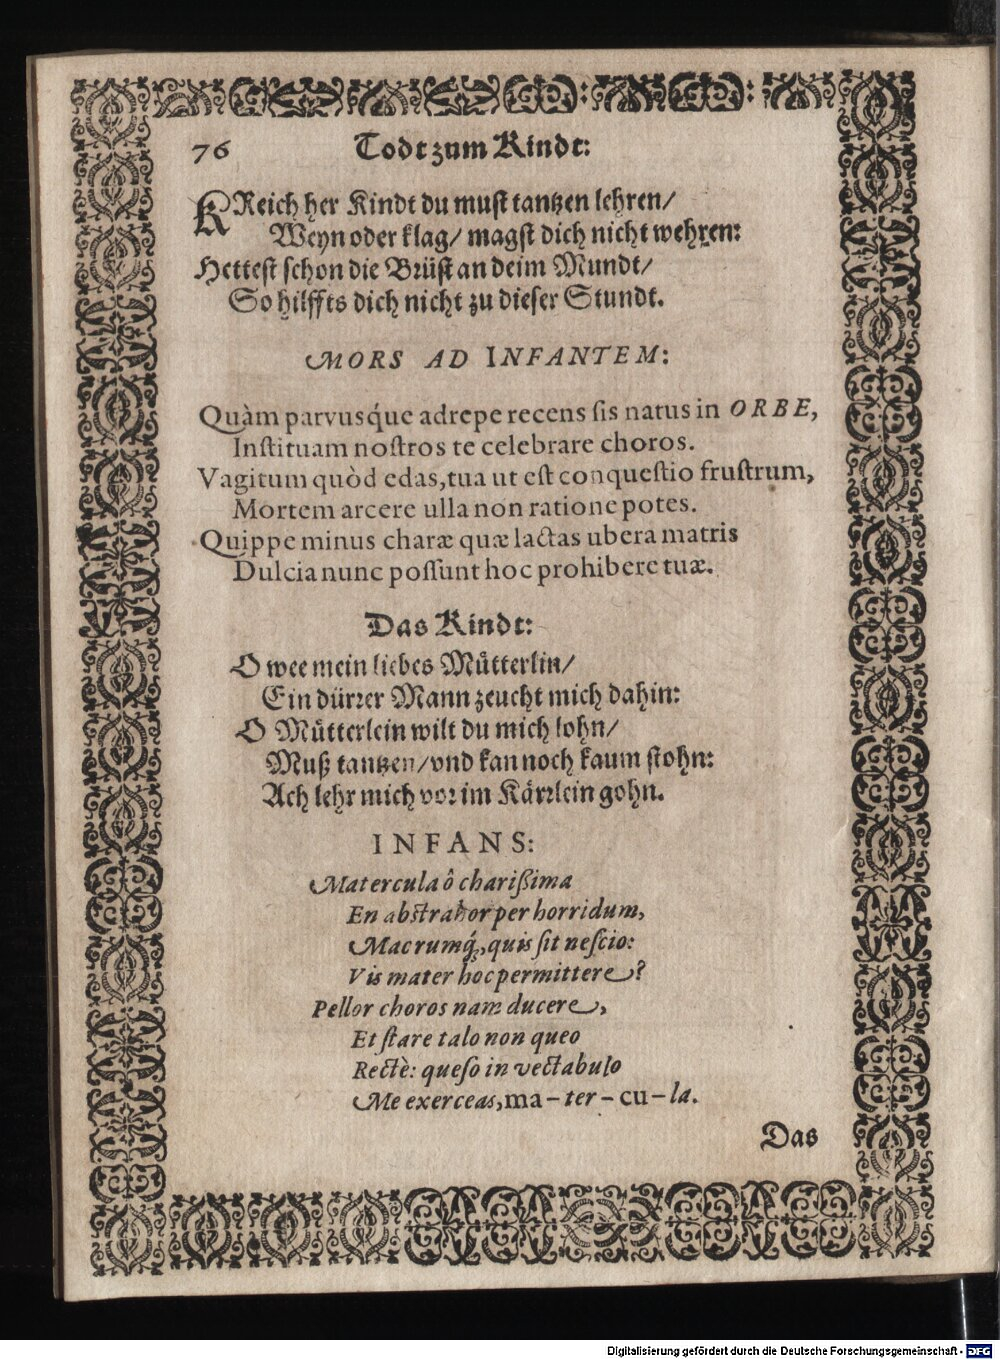 76 Todt zum Kindt:
KReich her Kindt du must tantzen lehren/
Weyn oder klag/ magst dich nicht wehren:
Hettest schon die Brüst an deim Mundt/
So hilffts dich nicht zu dieser Stundt.
MORS AD INFANTEM:
Quàm parvusq́ue adrepe recens sis natus in ORBE,
Instituam nostros te celebrare choros.
Vagitum quòd edas, tua ut est conquestio frustrum,
Mortem arcere ulla non ratione potes.
Quippe minus charæ quæ lactas ubera matris
Dulcia nunc possunt hoc prohibere tuæ.
Das Kindt:
O wee mein liebes Mütterlin/
Ein dürrer Mann zeucht mich dahin:
O Mütterlein wilt du mich lohn/
Muß tantzen/ vnd kan noch kaum stohn:
Ach lehr mich vor im Kärrlein gohn.
INFANS:
Matercula ô charißima
En abstrahor per horridum,
Macrumq́;, quis sit nescio:
Vis mater hoc permittere?
Pellor choros nam ducere,
Et stare talo non queo
Rectè: queso in vectabulo
Me exerceas, ma-ter-cu-la.
Das
Digitalisierung gefördert durch die Deutsche Forschungsgemeinschaft - DFG